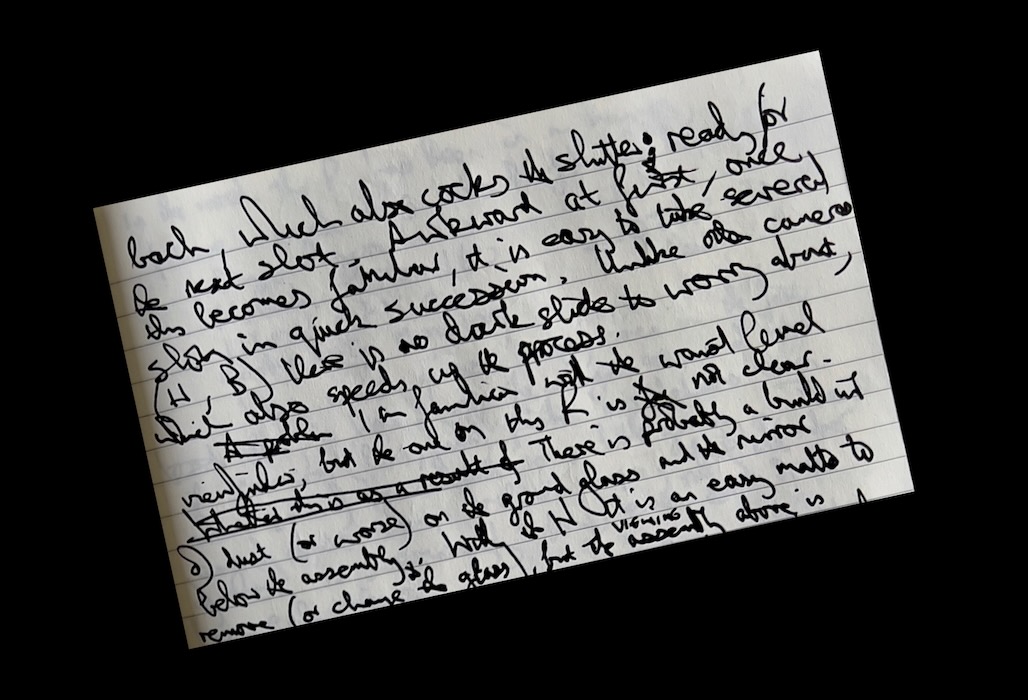 back, which also cocks the shutter; ready for
the next shot. Awkward at first, once
this becomes familiar, it is easy to take several
shots in quick succession. Unlike other cameras
(H, B) there is no dark slide to worry about,
which also speeds up the process.
I am familiar with the waist level
viewfinder, but the one on this R is not clear.
Whether this is as a result of There is probably a build up
of dust (or worse) on the ground glass and the mirror
below the assembly. With the H it is an easy matter to
remove (or change the glass), but the VIEWING assembly above is